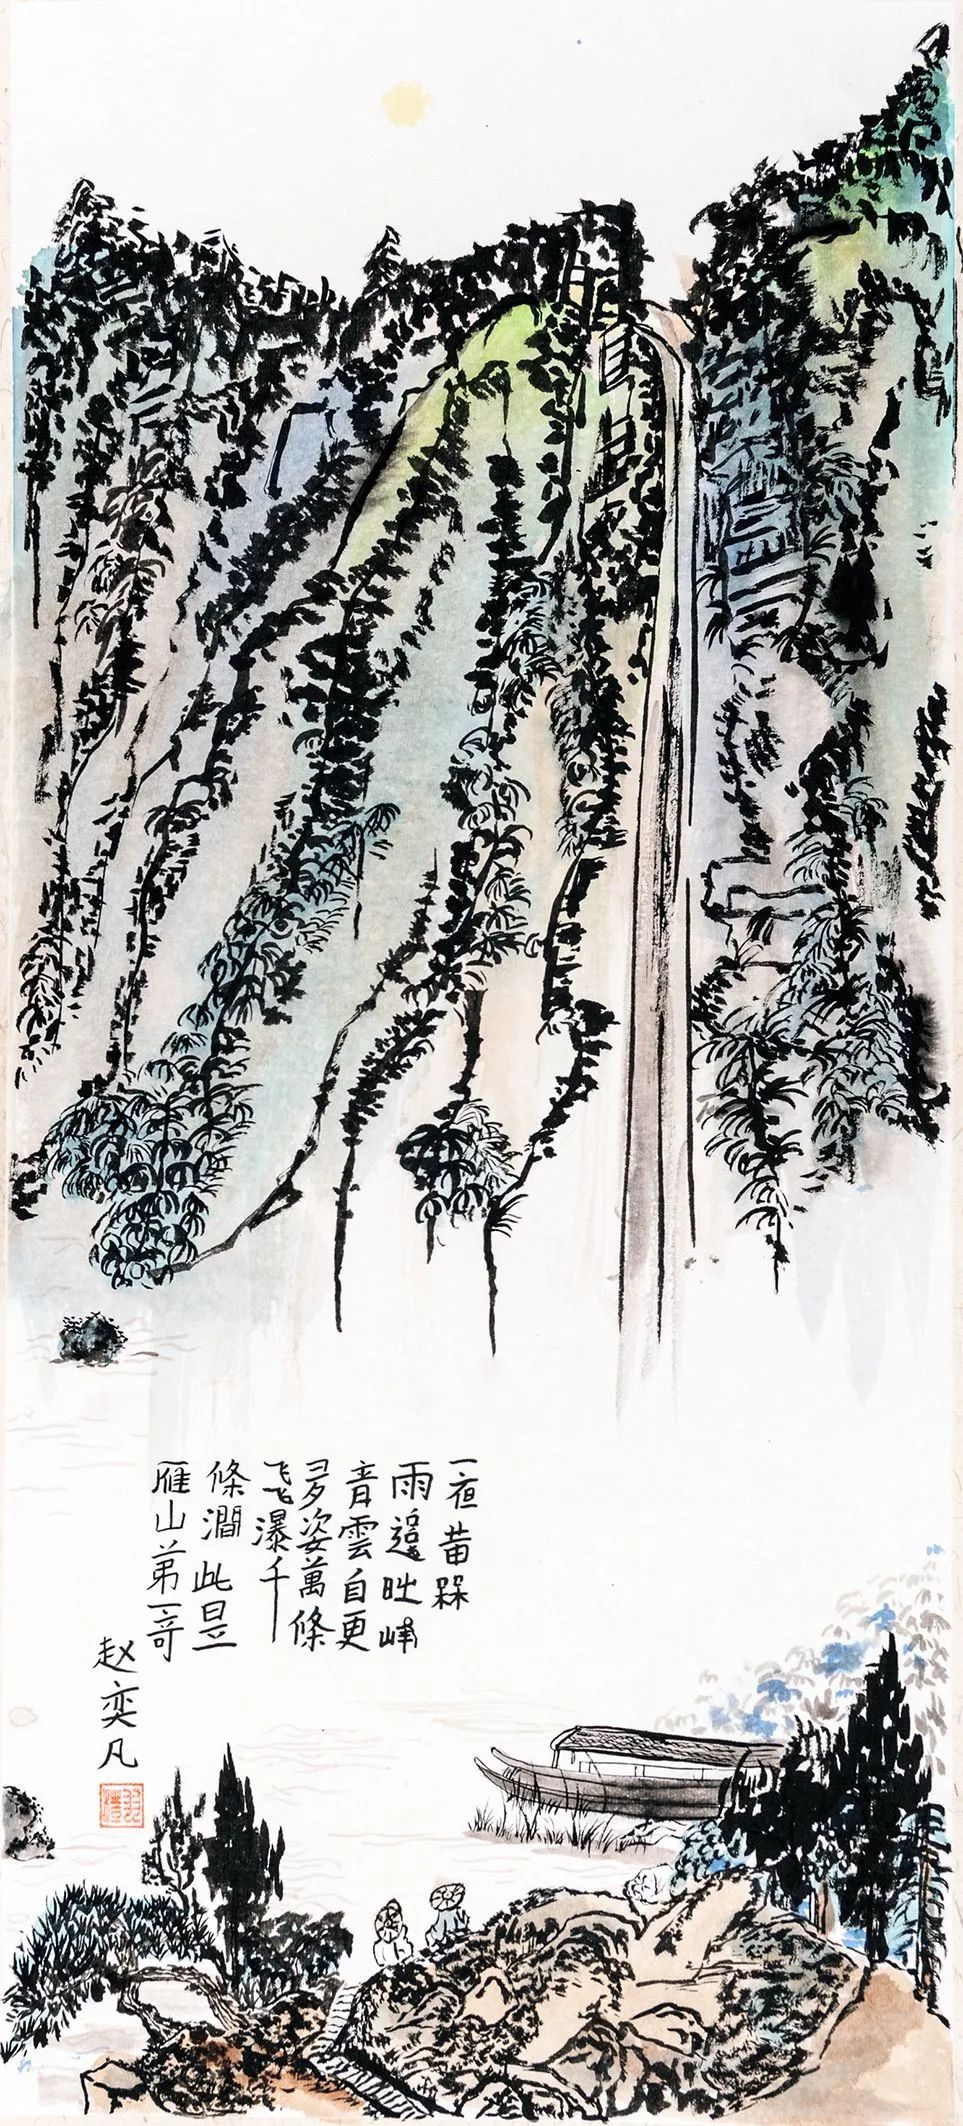 一夜黄槑
雨峰
青雲自更
多姿萬條
飞瀑千
條澗此是
雁山第一奇
赵奕凡